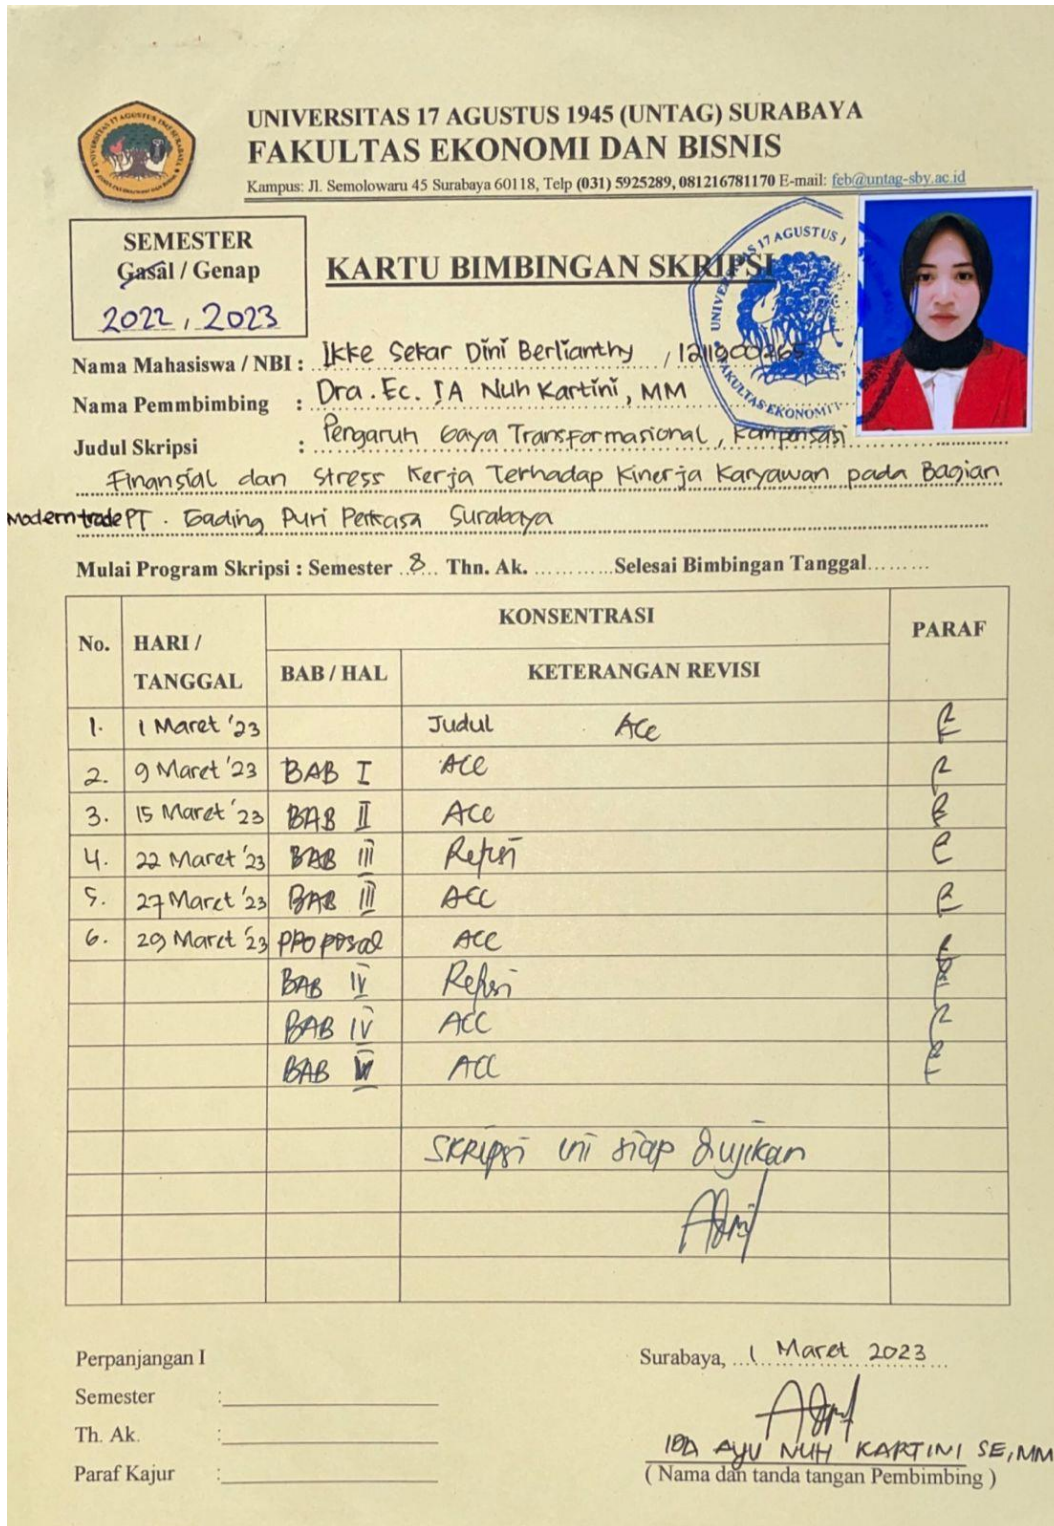 UNIVERSITAS 17 AGUSTUS 1945 (UNTAG) SURABAYA
FAKULTAS EKONOMI DAN BISNIS
Kampus: Jl. Semolowaru 45 Surabaya 60118, Telp (031) 5925289, 081216781170 E-mail: feb@untag-sby.ac.id
SEMESTER
Gasal / Genap
2022, 2023
KARTU BIMBINGAN SKRIPSI
Nama Mahasiswa / NBI : Ikke Sekar Dini Berlianthy , 1211900265
Nama Pemmbimbing : Dra. Ec. IA Nuh Kartini, MM
Judul Skripsi : Pengaruh Gaya Transformasional, Kompensasi
Finansial dan Stress Kerja Terhadap Kinerja Karyawan pada Bagian
Modern trade PT. Gading Puri Perkasa Surabaya
Mulai Program Skripsi : Semester 8 Thn. Ak. ............Selesai Bimbingan Tanggal.........
No. HARI / TANGGAL KONSENTRASI PARAF
BAB / HAL KETERANGAN REVISI
1. 1 Maret '23 Judul Acc
2. 9 Maret '23 BAB I Acc
3. 15 Maret '23 BAB II Acc
4. 22 Maret '23 BAB III Refisi
5. 27 Maret '23 BAB III ACC
6. 29 Maret '23 Proposal ACC
BAB IV Refisi
BAB IV ACC
BAB V ACC
Skripsi ini siap diujikan
Perpanjangan I
Surabaya, 1 Maret 2023
Semester :
Th. Ak. :
IDA AYU NUH KARTINI SE, MM
Paraf Kajur :
( Nama dan tanda tangan Pembimbing )